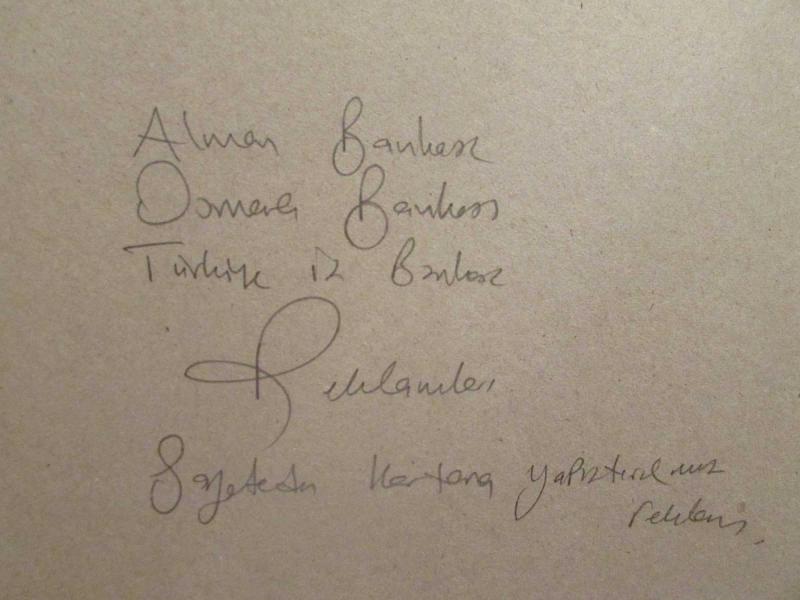 Alman Bankası
Osmanlı Bankası
Türkiye iş Bankası
Reklamları
Gazeteden Kartona yapıştırılmış
reklam.